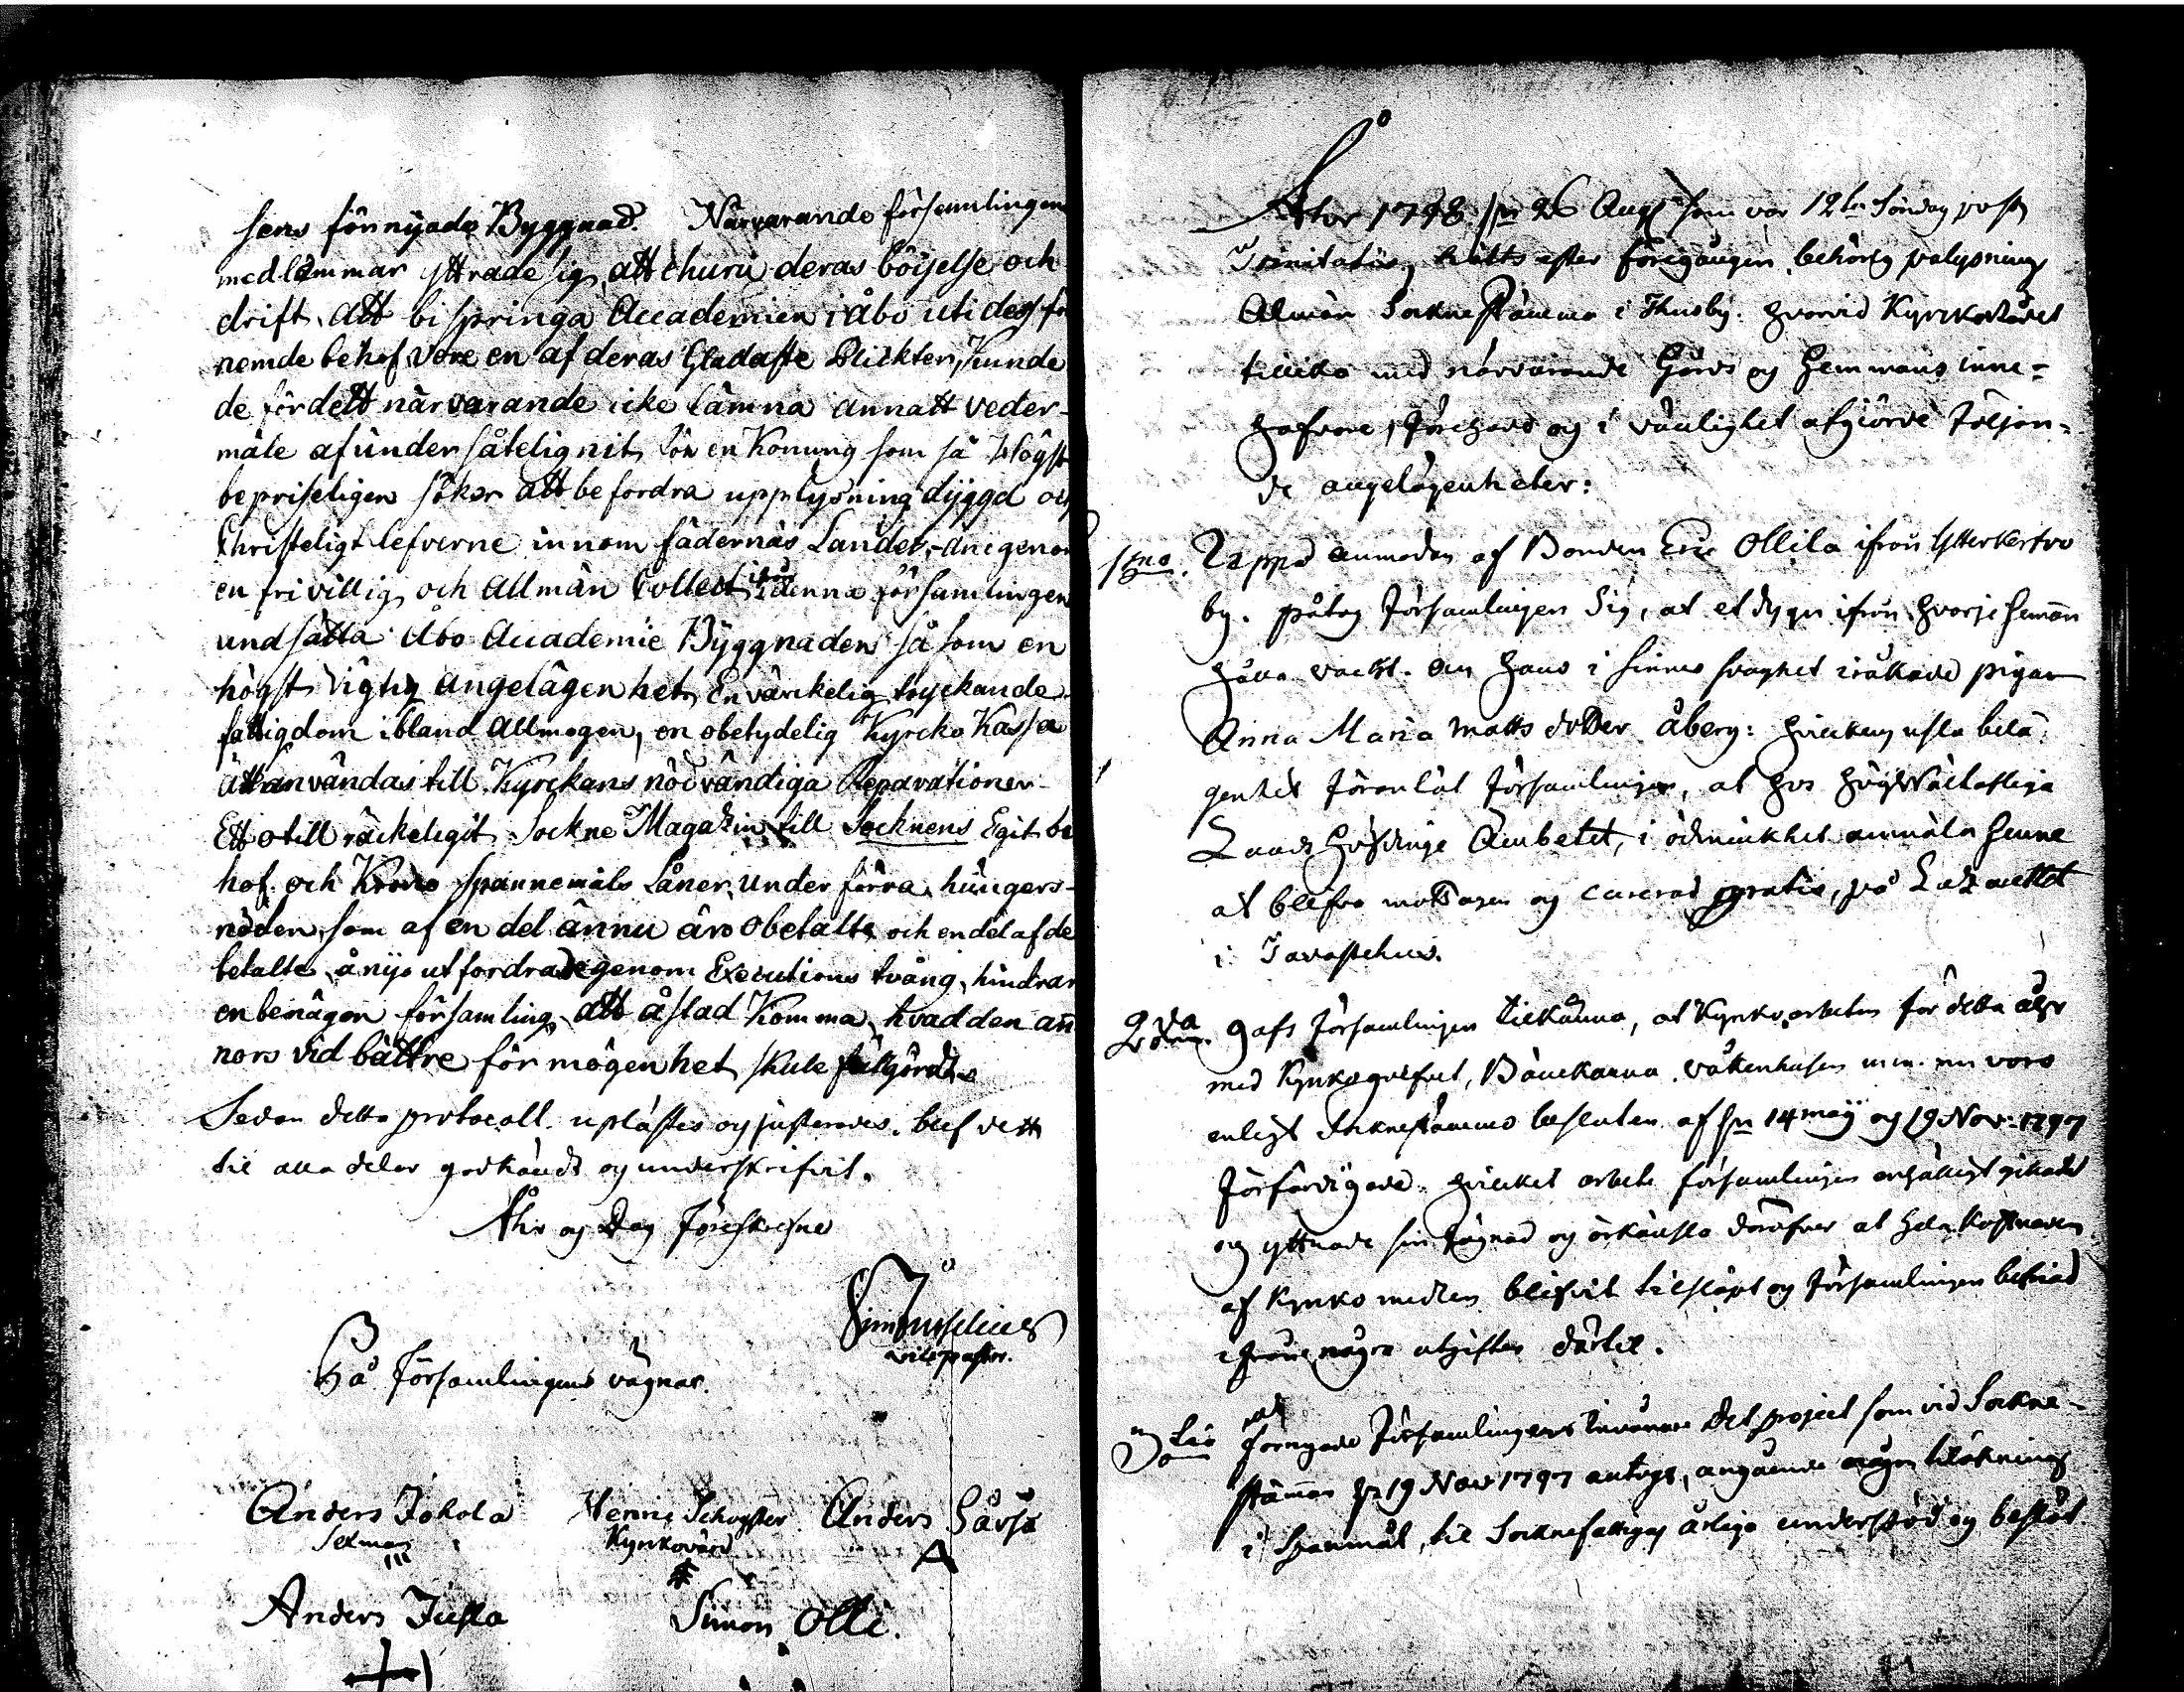 sens förnyade Byggnad. Närvarande församlingens
medlämmar yttrade sig, att ehuru deras böijelse och
drift, att bispringa Academien i Åbo uti dess för
nemde behof vore en af deras Gladaste Plickter, Kunde
de för dett närvarande icke lämna annatt veder-
mäle af undersåtelignit för en Konung som så Högst
beprisseligen söker att befordra upplysning dygd och
Christeligt lefverne innom fädernäs Landet, än igenom
en frivillig och Allmän Collect ifrån denna församlingen
undsätta Åbo Academie Byggnaden så som en
högst vigtig angelägenhet, En värckelig tryckande
fattigdom ibland Allmogen, en obetydelig Kyrcko Kassa
att användas till Kyrckans nödvändiga Reparationer
Ett otillräckeligit Sockne Magazin till Socknens Egit be
hof och Krono Spannemåls Låner under förra hungers-
nöden, som af en del ännu äro Obetalte och en del af de
betalte å nyo utfordrade genom Executions tvång, hindrar
en benägen församling att åstad Komma, hvad den an
nors vid bättre förmögenhet skule fulgördt
Sedan detta protocoll uplästes og justerades, blef dett
til alla delar godkändt og underskrifvit.
Åhr og Dag föreskrefne
vice pastor.
På församlingens vägnar.
Anders Jokela Henric Schogster Anders Särså
Sexman Kyrkovärd
Anders Jusla Simon Olli.
Åhr 1798 den 26 Aug som var 12te Söndag post
Trinitatis, hölts efter föregången behörig pålysning
Almän Sockne Stämma i Husby. hvarvid Kyrckorådet
tillika med närvarande Gårds og Hemmans inne-
hafvare, förehade og i vänlighet afgiorde följan-
de angelägenheter:
1mo. Uppå anmodan af Bonden Eric Ollila ifrån Ytterkertvo
by. påtog församlingen Sig, at et dygn ifrån hvarje heman
hålla vackt om hans i sinnes svaghet iråkade pigan
Anna Maria Matts dotter Åberg: hvilken usla belä
genhet föranlät församlingen, at hos Högvälloflige
Landshöfdinge Embetet, i ödmiukhet anmäla henne
at blifva mottagen og curerad gratis, på Lazarettet
i Tavastehus.
2do. gafs församlingen tilkänna, at Kyrkoarbeten för detta åhr
med Kyrkogolfvet, Bänckarna, våkenhusen m.m. nu voro
enligt Sockenstämmo besluten af den 14 maij og 19 Nov. 1797
förfärdigade. hvilket arbete församlingen enhälligt gillade
og yttrade sin fägnad og ärkänsla däröfver at hela Kostnaden
af Kyrko medlen blifvit tilsläpt og församlingen befriad
ifrån några utgifter därtil.
3tio förnyade församlingens invånare det project som vid Sockne-
stämman den 19 Nov 1797 antogs, angående någon tilökning
i Spanmål, til Sockne fattigas årliga understöd og bestånd